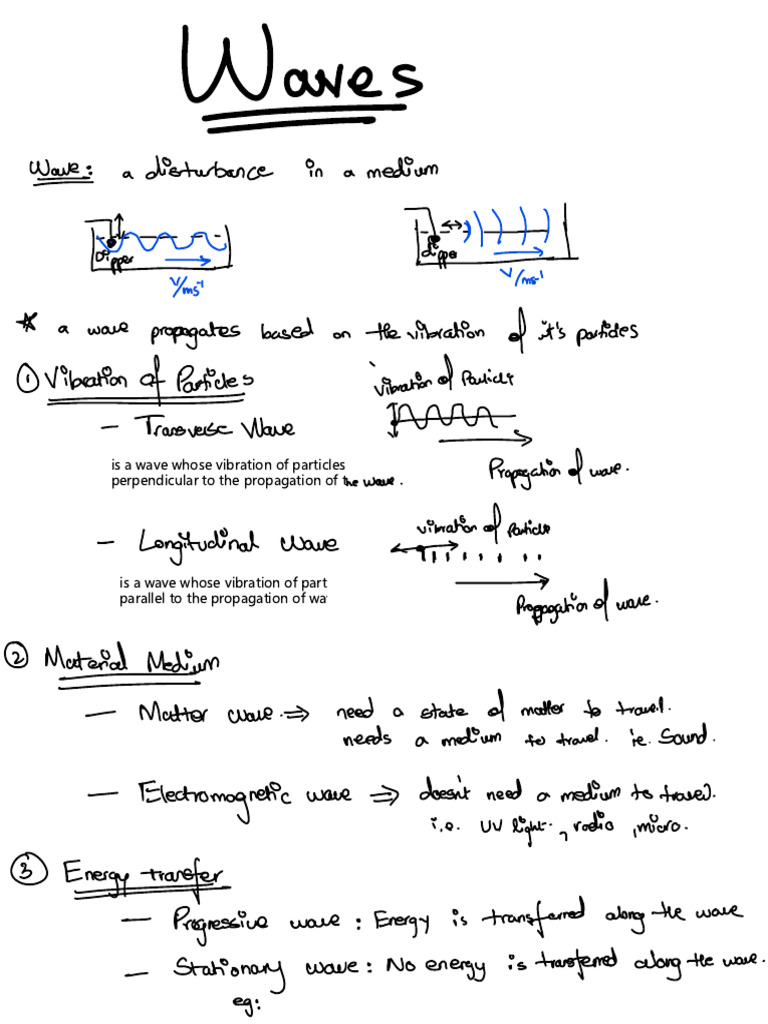 Waves
Wave: a disturbance in a medium
Dipper
V/ms⁻¹
dipper
V/ms⁻¹
* a wave propagates based on the vibration of it's particles
① Vibration of Particles
– Transverse Wave
is a wave whose vibration of particles
perpendicular to the propagation of the wave.
Vibration of Particle
Propagation of wave.
– Longitudinal wave
is a wave whose vibration of part
parallel to the propagation of wa
vibration of Particle
Propagation of wave.
② Material Medium
– Matter wave ⇒ need a state of matter to travel.
needs a medium to travel. ie. Sound.
– Electromagnetic wave ⇒ doesn't need a medium to travel.
i.e. UV light, radio, micro.
③ Energy transfer
– Progressive wave: Energy is transferred along the wave
– Stationary wave: No energy is transferred along the wave.
eg: